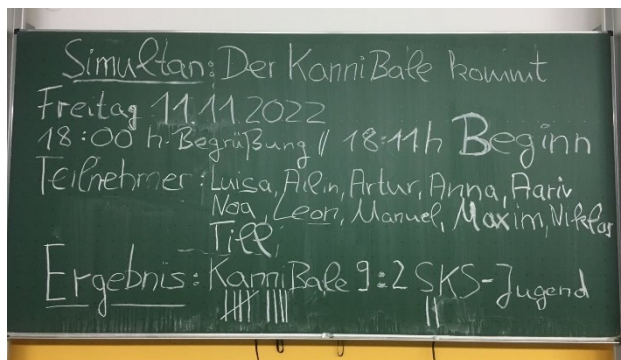 Simultan: Der KanniBale kommt
Freitag 11.11.2022
18:00 h Begrüßung // 18:11h Beginn
Teilnehmer: Luisa, Ailin, Artur, Anna, Aariv
Noa, Leon, Manuel, Maxim, Niklas
Till,
Ergebnis: KanniBale 9:2 SKS-Jugend